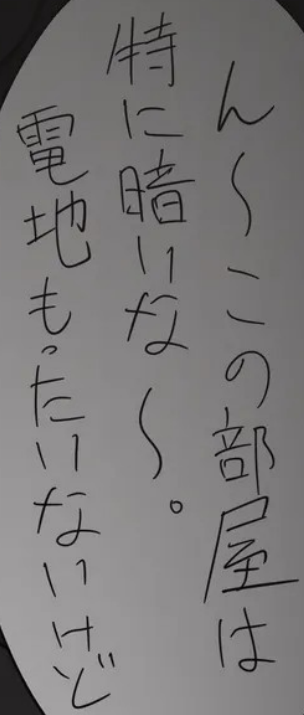 ん～この部屋は
特に暗いな～。
電地もったいないけど